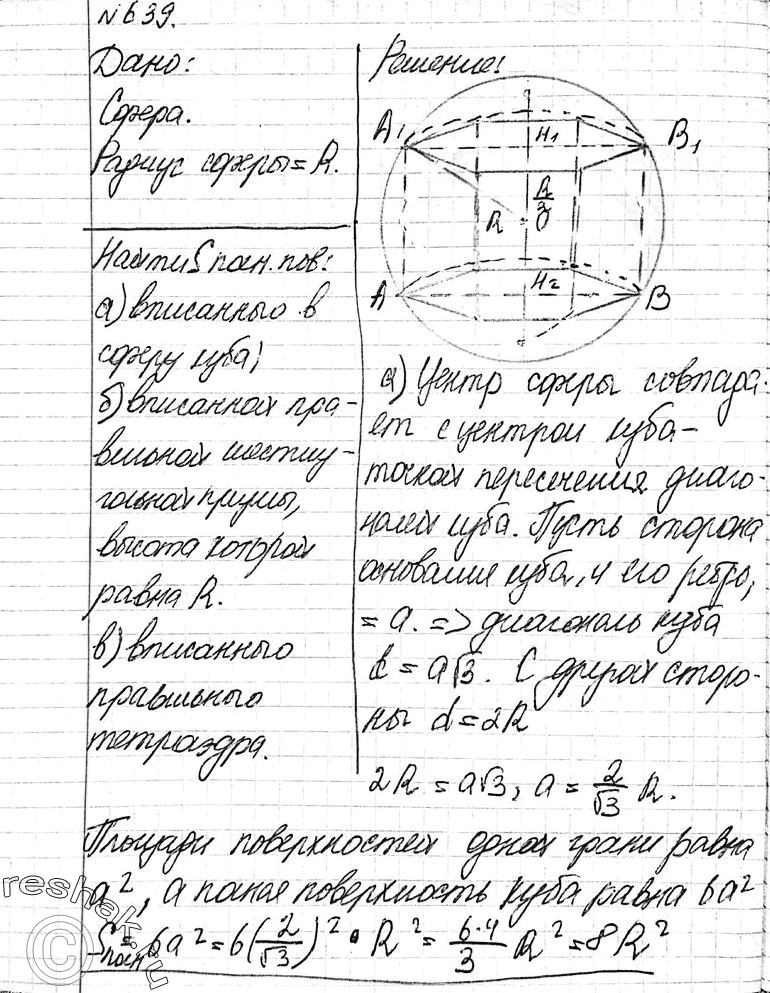 №639.
Дано:
Сфера.
Радиус сферы = R.
Найти Sпол.пов:
а) вписанного в
сферу куба;
б) вписанной пра-
вильной шестиу-
гольной призмы,
высота которой
равна R.
в) вписанного
правильного
тетраэдра.
Решение:
A1
H1
B1
R/2
R
O
A
H2
B
а) Центр сферы совпада-
ет с центром куба -
точкой пересечения диаго-
налей куба. Пусть сторона
основания куба, и его ребро,
= a. => диагональ куба
d = a√3. С другой сторо-
ны d = 2R
2R = a√3, a = 2/√3 R.
Площади поверхностей одной грани равна
a², а полная поверхность куба равна 6a²
Sпол = 6a² = 6(2/√3)² • R² = 6·4/3 R² = 8R²
© reshak.ru